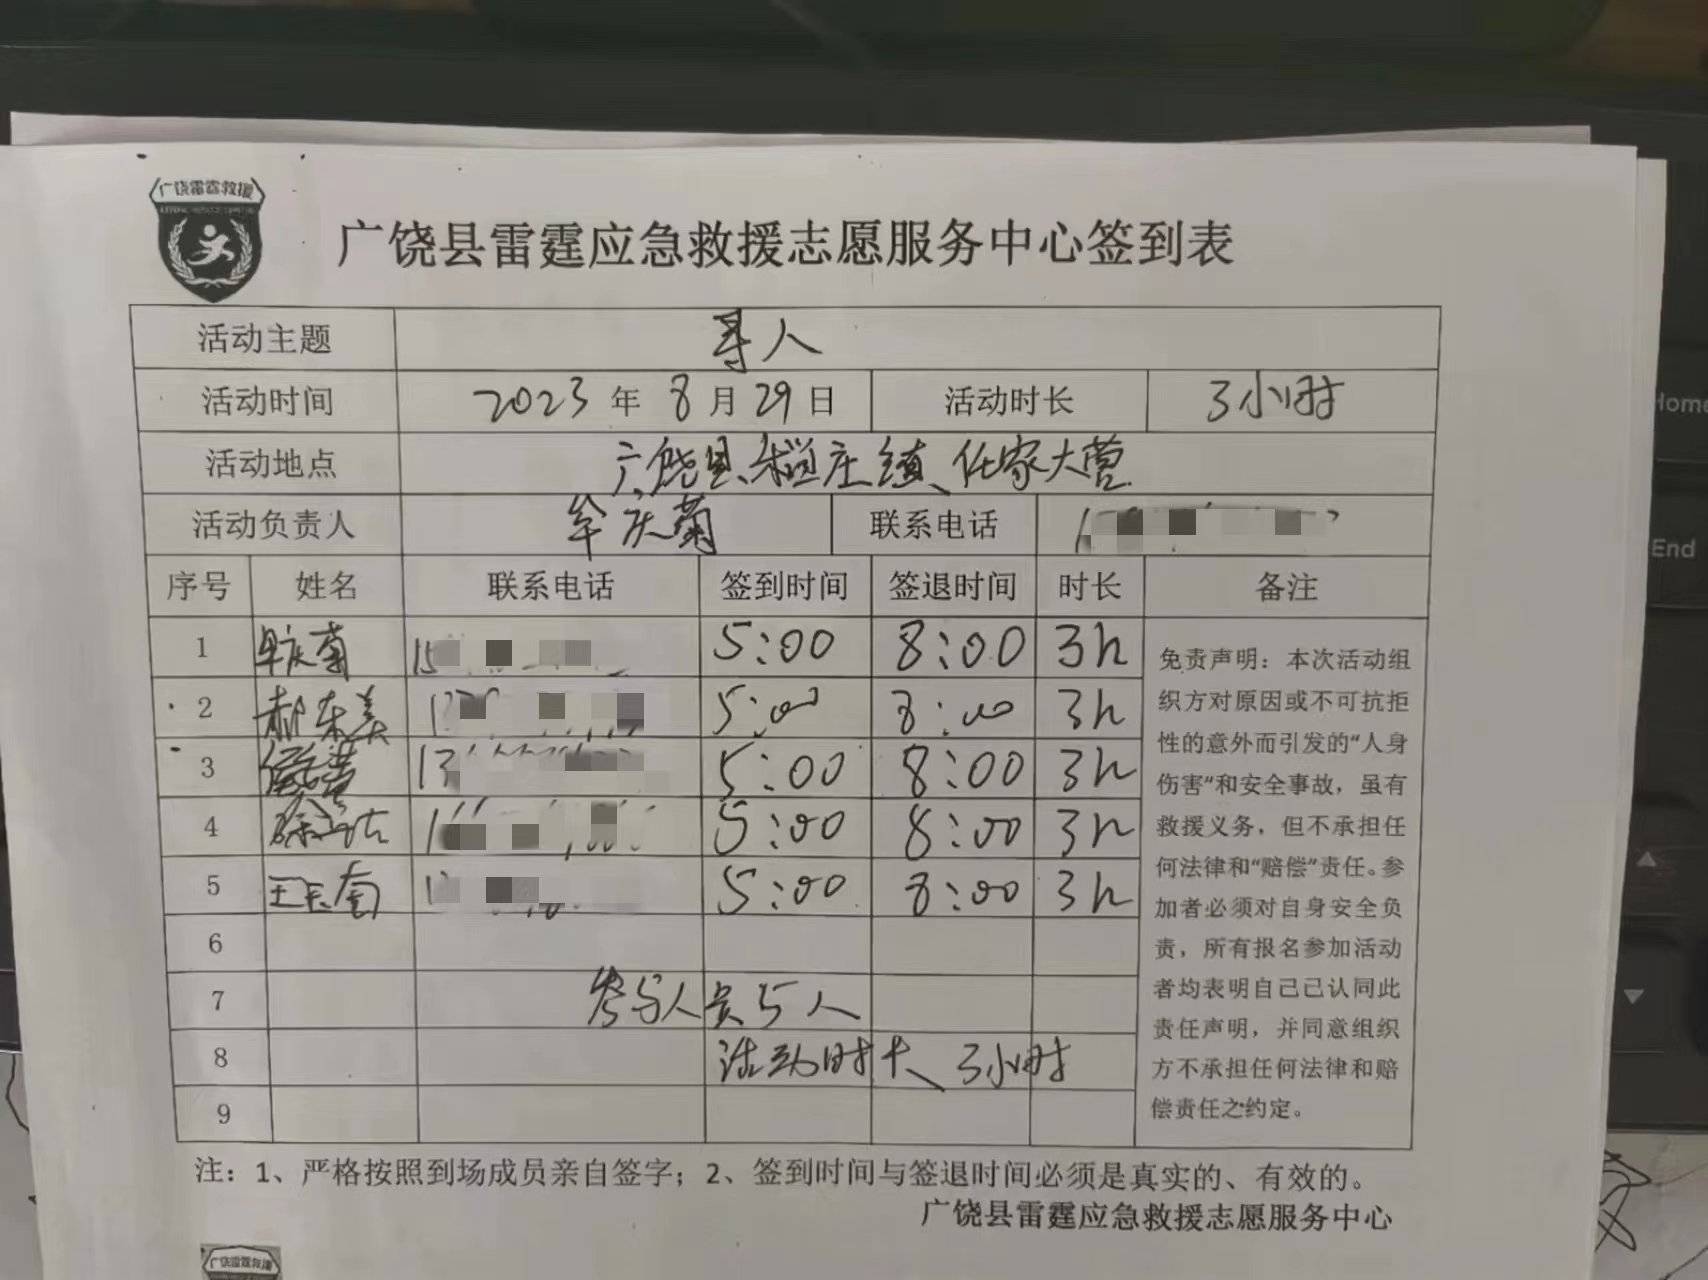 广饶雷霆救援
广饶县雷霆应急救援志愿服务中心签到表
活动主题 寻人
活动时间 2023 年 8 月 29 日 活动时长 3小时
活动地点 广饶县、稻庄镇、任家大营
活动负责人 牟庆菊 联系电话
序号 姓名 联系电话 签到时间 签退时间 时长 备注
1 牟庆菊 15 5:00 8:00 3h
2 郝东美 5:00 8:00 3h
3 13 5:00 8:00 3h
4 5:00 8:00 3h
5 5:00 8:00 3h
6
7 参与人员5人
8 活动时长 3小时
9
免责声明：本次活动组
织方对原因或不可抗拒
性的意外而引发的“人身
伤害”和安全事故，虽有
救援义务，但不承担任
何法律和“赔偿”责任。参
加者必须对自身安全负
责，所有报名参加活动
者均表明自己已认同此
责任声明，并同意组织
方不承担任何法律和赔
偿责任之约定。
注：1、严格按照到场成员亲自签字；2、签到时间与签退时间必须是真实的、有效的。
广饶县雷霆应急救援志愿服务中心
广饶雷霆救援
Home
End